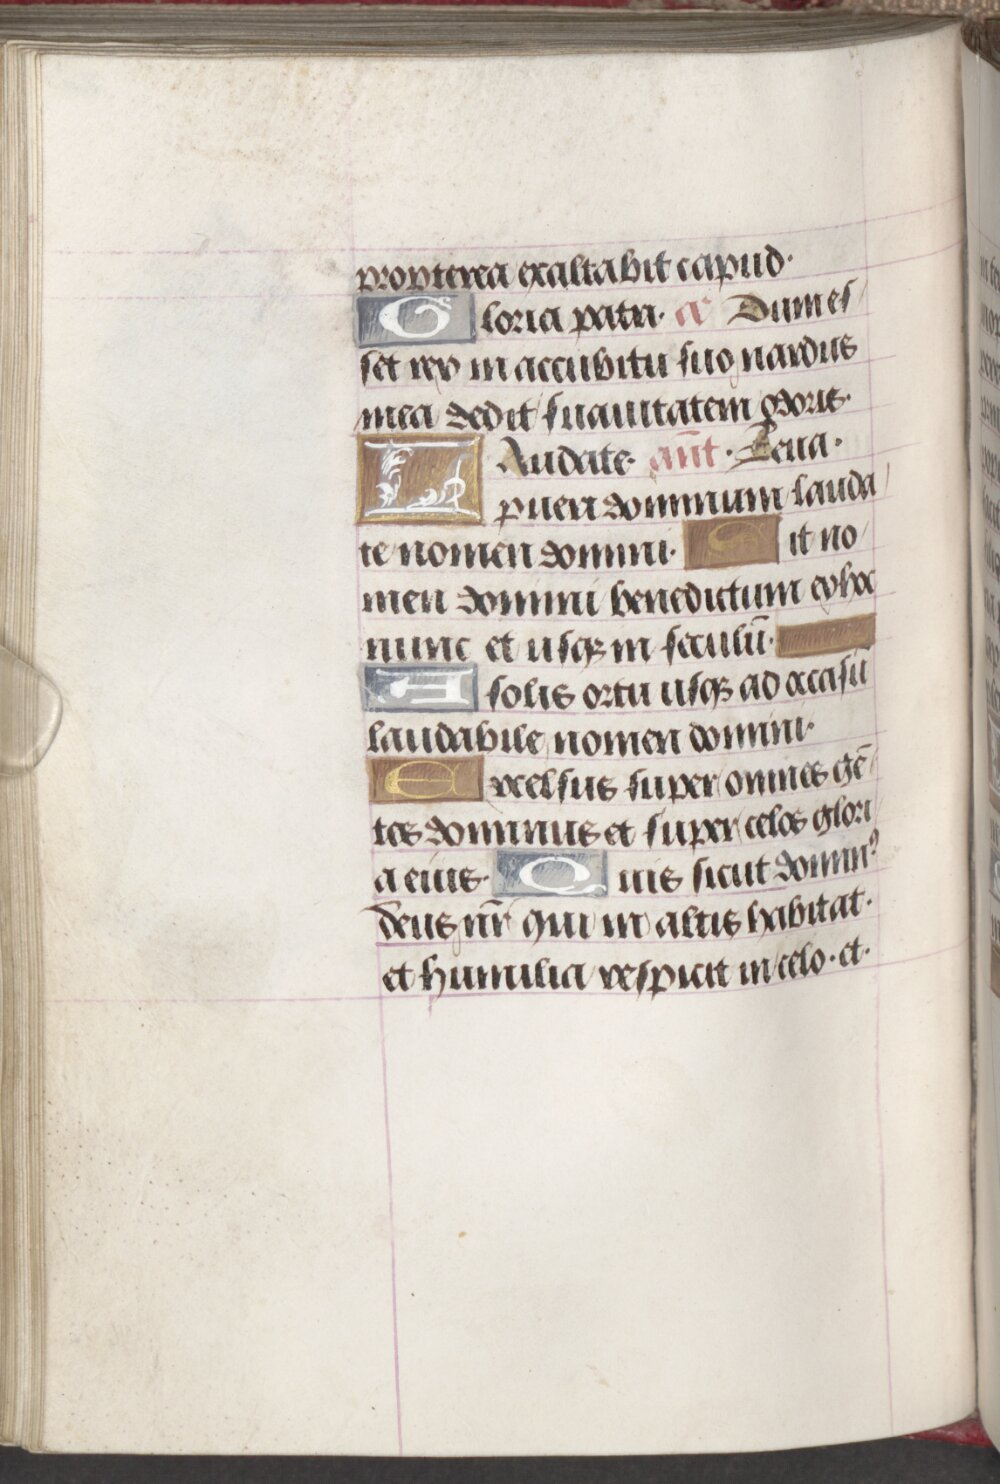 propterea exaltabit capud·
Gloria patri· a͞ Dum es
set rex in accubitu suo nardus
mea dedit suauitatem odoris·
LAudate· an̄t · Leua·
pueri dominum lauda
te nomen domini· Sit no
men domini benedictum ex hoc
nunc et usqꝫ in seculū·
A solis ortu usqꝫ ad occasū
laudabile nomen domini·
Excelsus super omnes gē
tes dominus et super celos glori
a eius· Quis sicut dominꝰ
deus nr̄ qui in altis habitat·
et humilia respicit in celo· et·